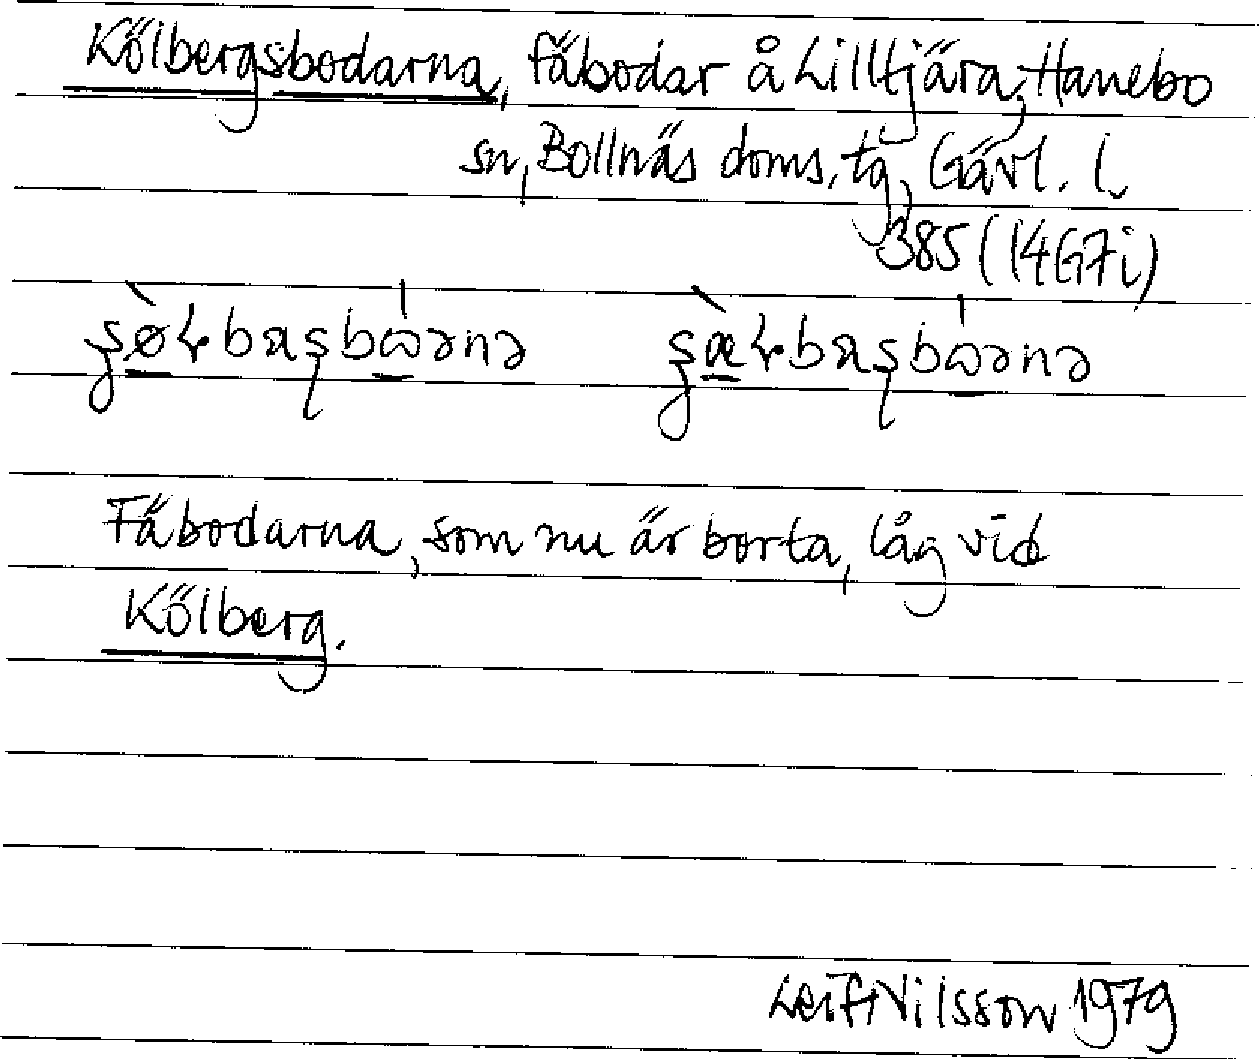 Kölbergsbodarna, fäbodar å Lilltjära, Hanebo
sn, Bollnäs doms. tg, Gävl. l.
385 (14G7i)
Fäbodarna, som nu är borta, låg vid
Kölberg.
Leif Nilsson 1979